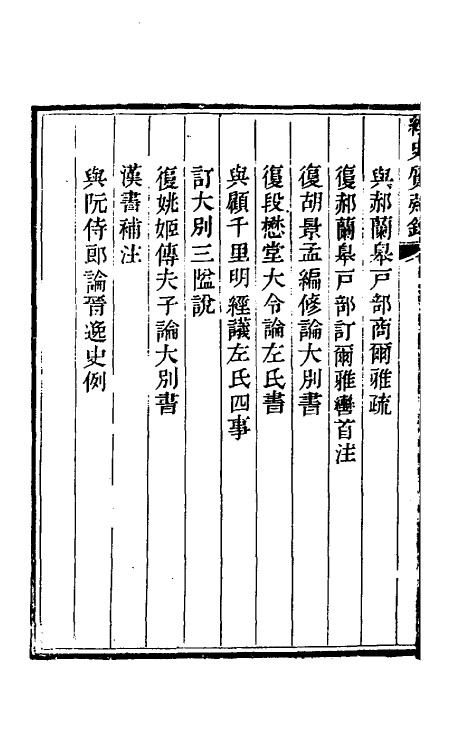 經史質疑錄
與郝蘭臯戸部商爾雅疏
復郝蘭臯戸部訂爾雅轡首注
復胡景孟編修論大別書
復段懋堂大令論左氏書
與顧千里明經議左氏四事
訂大別三隘說
復姚姬傳夫子論大別書
漢書補注
與阮侍郎論晉逸史例